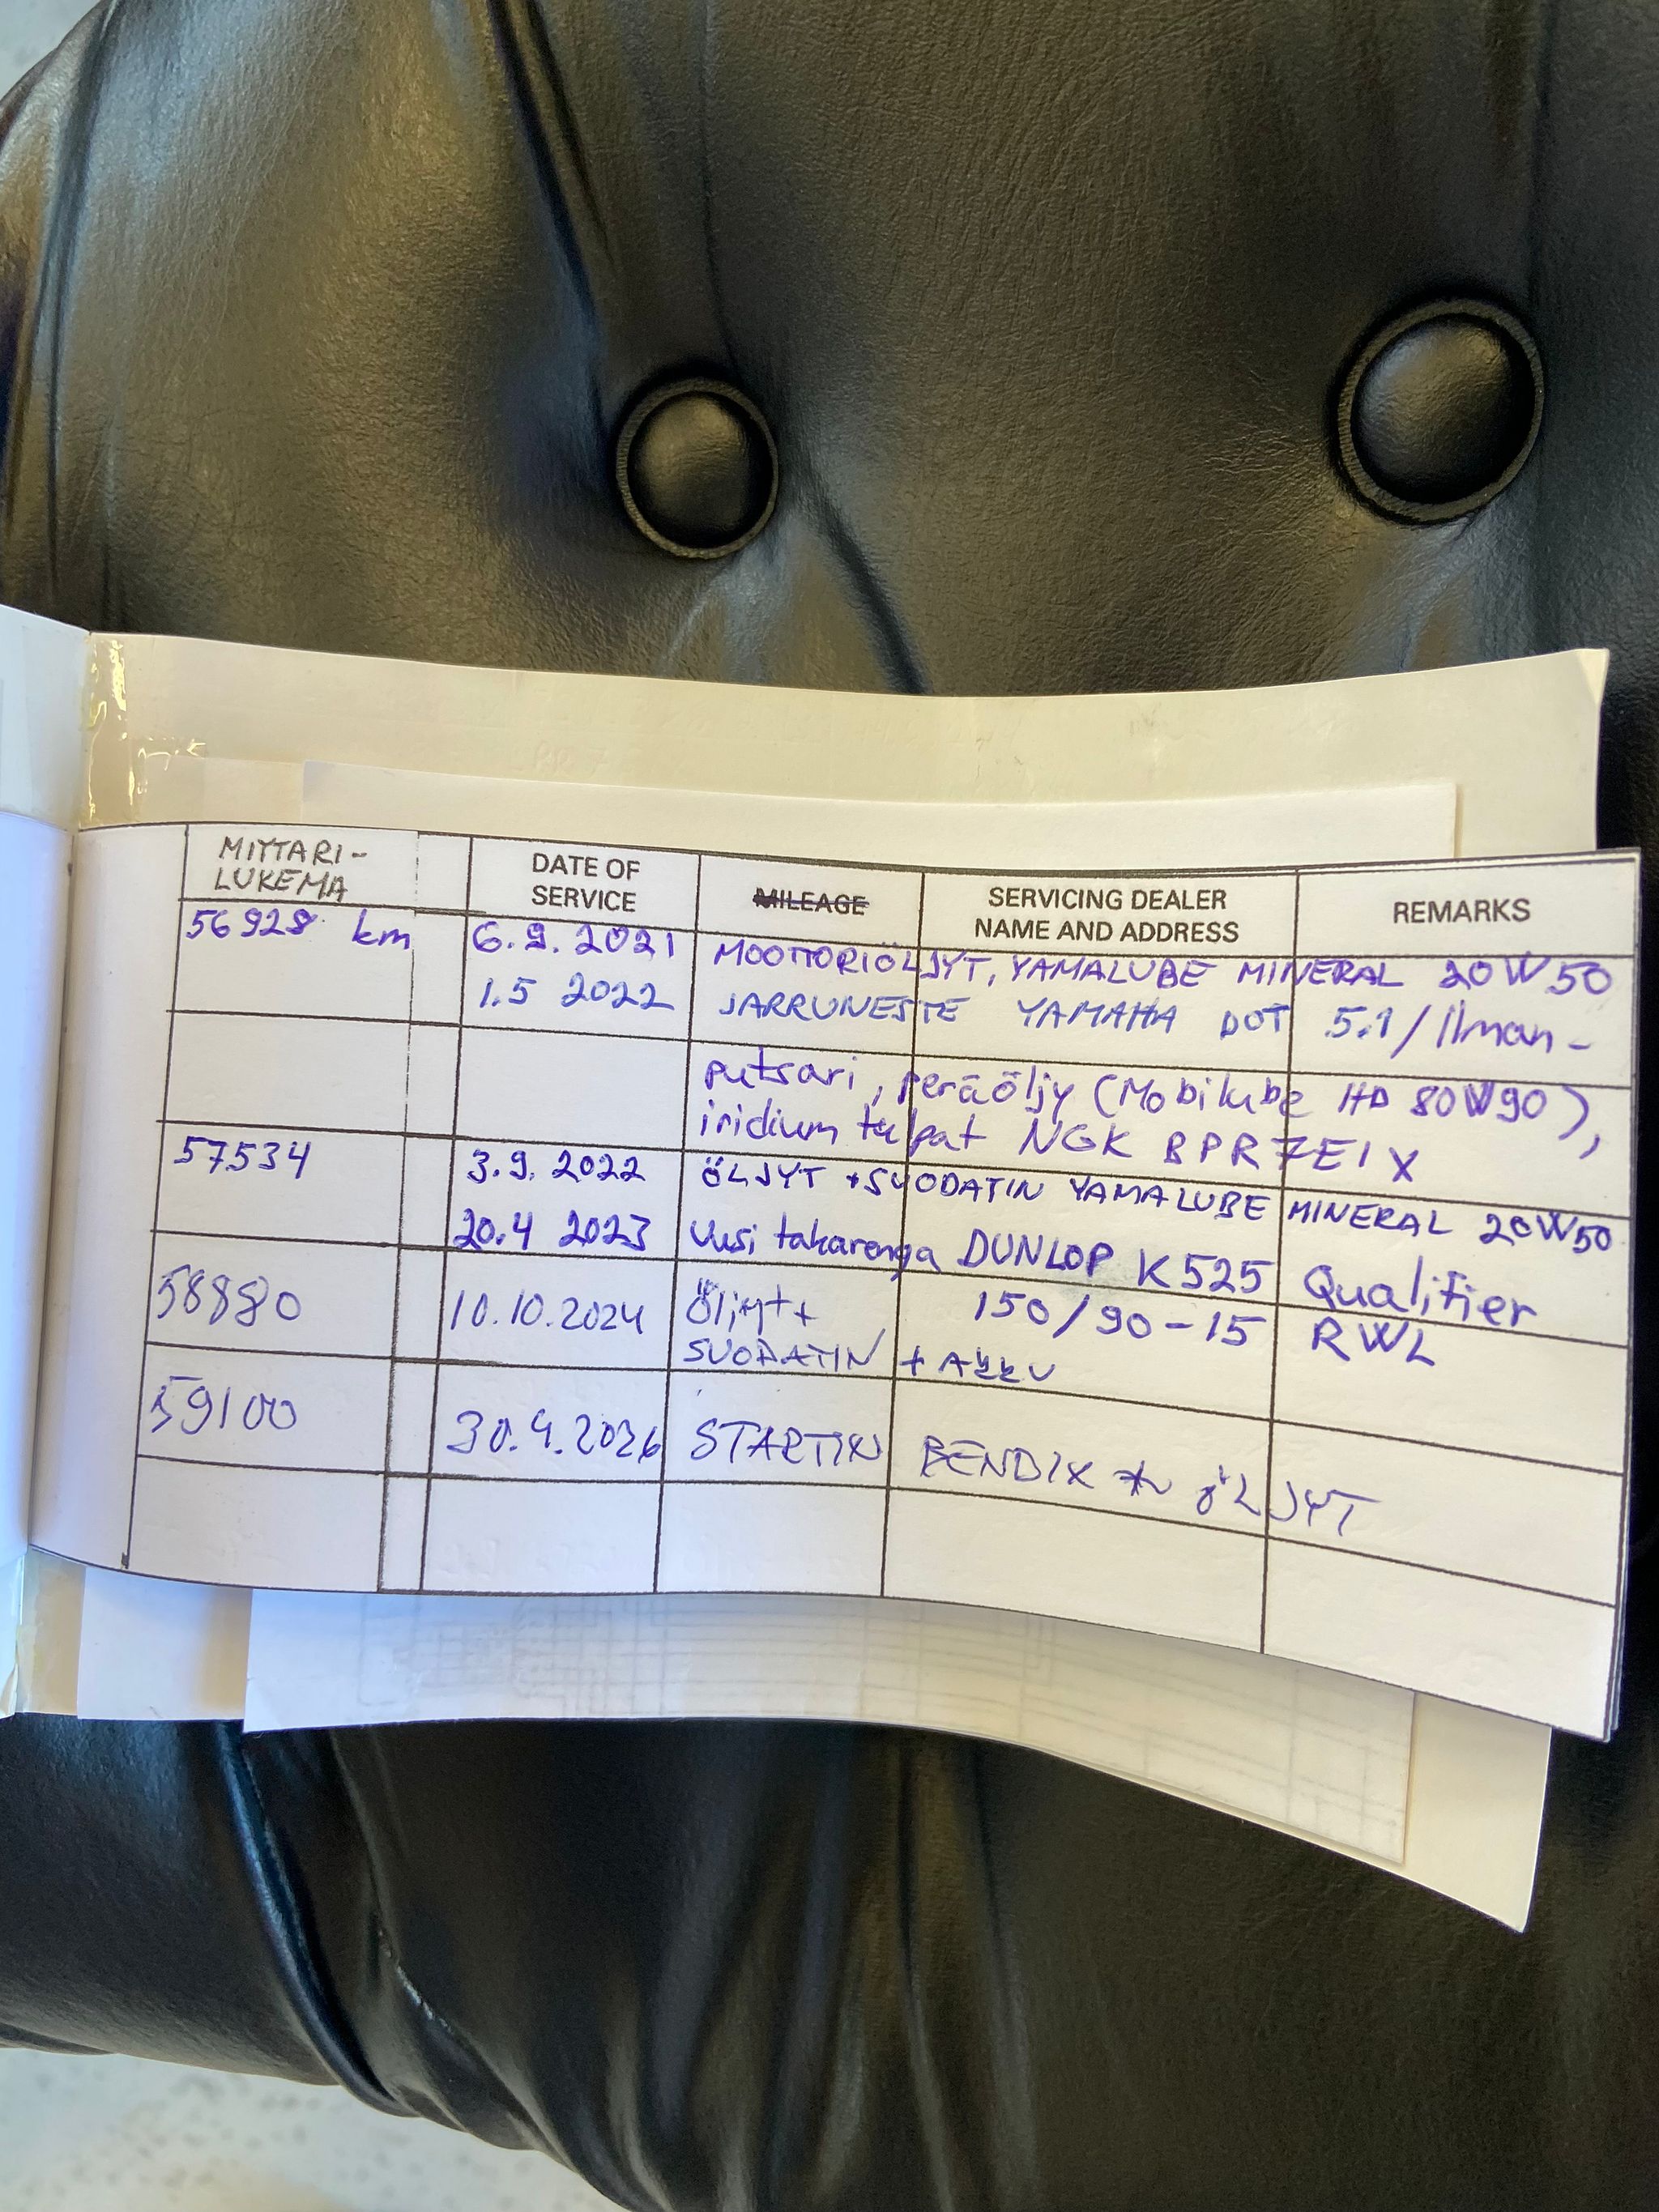 MITTARI-
LUKEMA
DATE OF
SERVICE
MILEAGE
SERVICING DEALER
NAME AND ADDRESS
REMARKS
56928 km 6.9.2021 MOOTTORIÖLJYT, YAMALUBE MINERAL 20W50
1.5 2022 JARRUNESTE YAMAHA DOT 5.1/Ilman-
putsari, peräöljy (Mobilube HD 80W90),
iridium tulpat NGK BPR7EIX
57534 3.9.2022 ÖLJYT + SUODATIN YAMALUBE MINERAL 20W50
20.4 2023 Uusi takarenga DUNLOP K525 Qualifier
150/90-15 RWL
58880 10.10.2024 Öljyt+
SUODATIN + AKKU
59100 30.4.2026 STARTIN BENDIX ÖLJYT